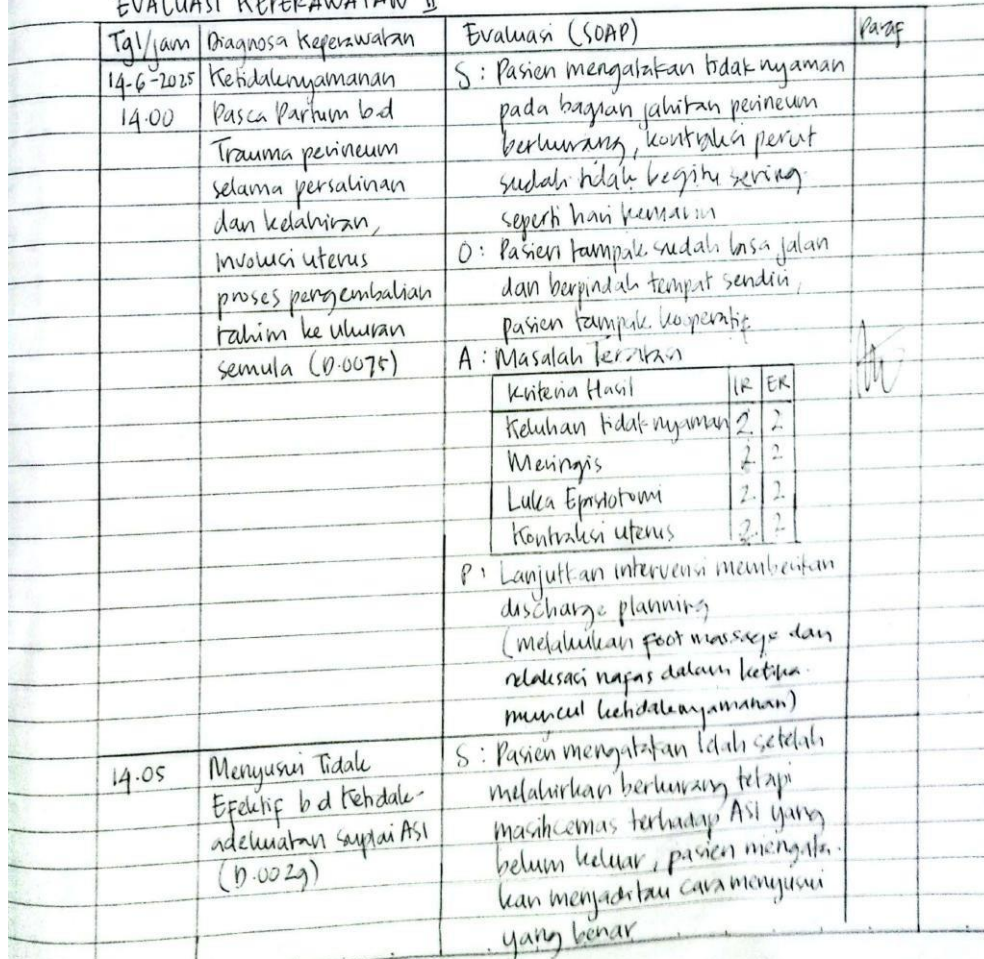 EVALUASI KEPERAWATAN II
Tgl/jam Diagnosa Keperawatan Evaluasi (SOAP) Paraf
14-6-2025
14.00
Ketidaknyamanan
Pasca Partum b.d
Trauma perineum
selama persalinan
dan kelahiran,
involusi uterus
proses pengembalian
rahim ke ukuran
semula (D.0075)
S : Pasien mengatakan tidak nyaman
pada bagian jahitan perineum
berkurang, kontraksi perut
sudah tidak begitu sering
seperti hari kemarin
O : Pasien tampak sudah bisa jalan
dan berpindah tempat sendiri,
pasien tampak kooperatif
A : Masalah teratasi
Kriteria Hasil IR ER
Keluhan tidak nyaman 2 2
Meringis 2 2
Luka Episiotomi 2 2
Kontraksi uterus 2 2
P : Lanjutkan intervensi memberikan
discharge planning
(melakukan foot massage dan
relaksasi napas dalam ketika
muncul ketidaknyamanan)
14.05
Menyusui Tidak
Efektif b.d Ketidak-
adekuatan suplai ASI
(D.0029)
S : Pasien mengatakan lelah setelah
melahirkan berkurang tetapi
masih cemas terhadap ASI yang
belum keluar, pasien mengata-
kan menjadi tau cara menyusui
yang benar